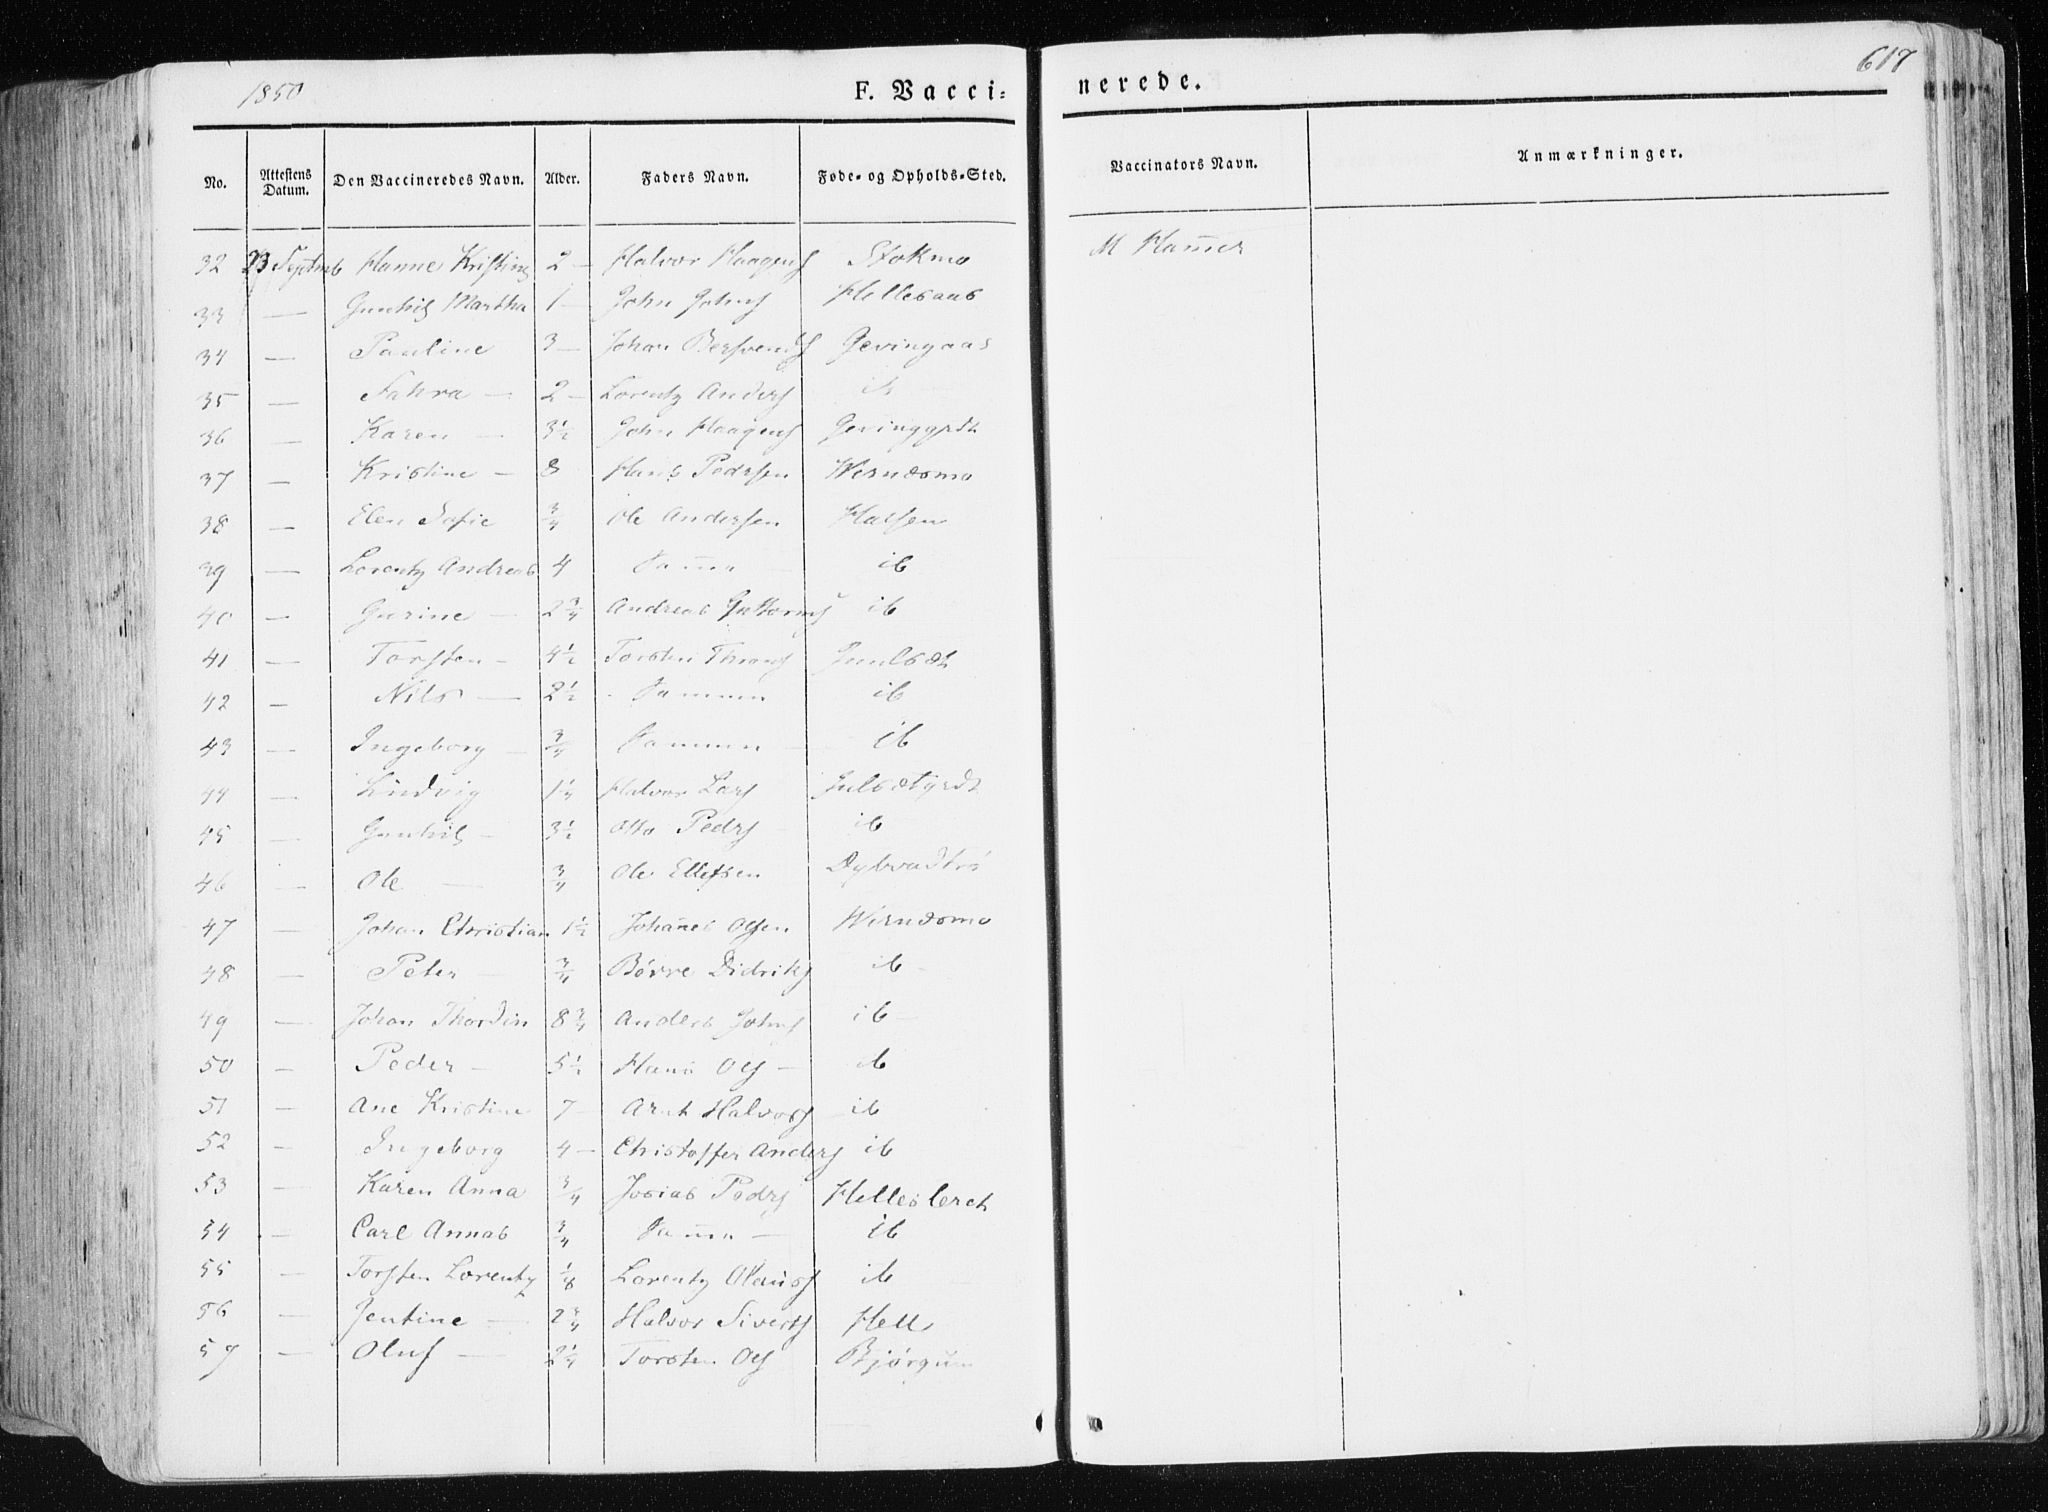 1850 F. Vacci= nerede. 617
No. Attestens Datum. Den Vaccineredes Navn. Alder. Faders Navn. Føde- og Opholds-Sted. Vaccinators Navn. Anmærkninger.
32 23 Septmb Hanne Kristine 2 — Halvor Haagens Stokmo M Ham̄er
33 — Gunhil Martha 1 — John Johns Hellesaas
34 — Pauline 3 — Johan Bersvends Gevingaas
35 — Sahra — 2 — Lorentz Anders ib
36 — Karen — 3½ John Haagens Gevinggrdt
37 — Kristine — 8 Hans Pedersen Wernesmo
38 — Elen Sofie ¾ Ole Andersen Halsen
39 — Lorentz Andreas 4 Sam̄e — ib
40 — Gurine — 2¾ Andreas Guttorms ib
41 — Torsten — 4½ Torsten Throns
42 — Nils — 2½ Sammen ib
43 — Ingeborg — ¾ Sammen — ib
44 — Ludvig 1¼ Halvor Lars
45 — Gunhil — 3½ Otto Peders — ib
46 — Ole — ¾ Ole Ellefsen Dybvadtrø
47 — Johan Christian 1½ Johan̄es Olsen Wernesmo
48 — Peter — ¾ Børre Didriks ib —
49 — Johan Thordin 8¾ Anders Johns ib —
50 — Peder — 5½ Hans Ols — ib
51 — Ane Kristine 7 — Arnt Halvors ib
52 — Ingeborg 4 — Christoffer Anders ib
53 — Karen Anna ¾ Josias Peders
54 — Carl Annas ¾ Sam̄e — ib
55 — Torsten Lorentz ⅛ Lorentz Olaus ib
56 — Jentine — 2¾ Halvor Siverts Hell
57 — Oluf — 2¼ Torsten Ols Bjørgum